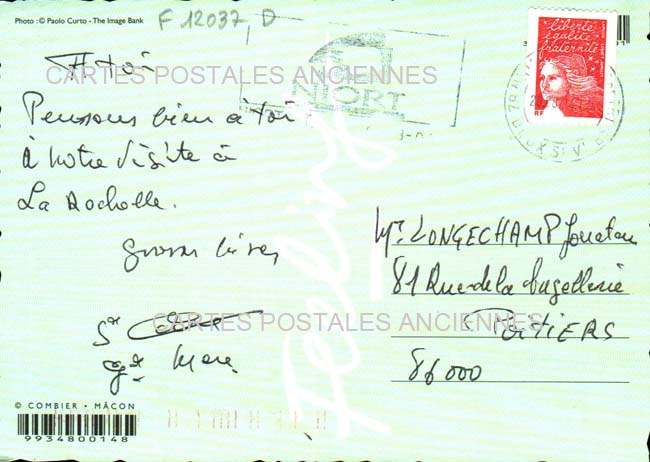 Photo : © Paolo Curto - The Image Bank
F 12037 D
liberté
égalité
fraternité
RF
CARTES POSTALES ANCIENNES
NIORT
Pensons bien à toi
à notre visite à
La Rochelle.
Mr. LONGECHAMP Jonatan
81 Rue de la bugellerie
POITIERS
86000
CARTES POSTALES ANCIENNES
Feeling
© COMBIER - MÂCON
9934800148